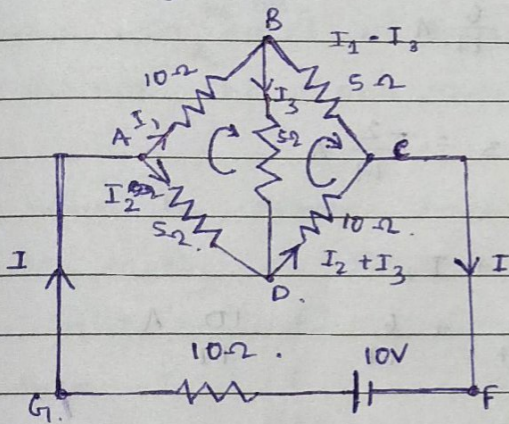 B
I₁ - I₃
10Ω
5Ω
I₃
A
I₁
5Ω
C
I₂
5Ω
10Ω.
I
I₂ + I₃
I
D.
10Ω.
10V
G.
F